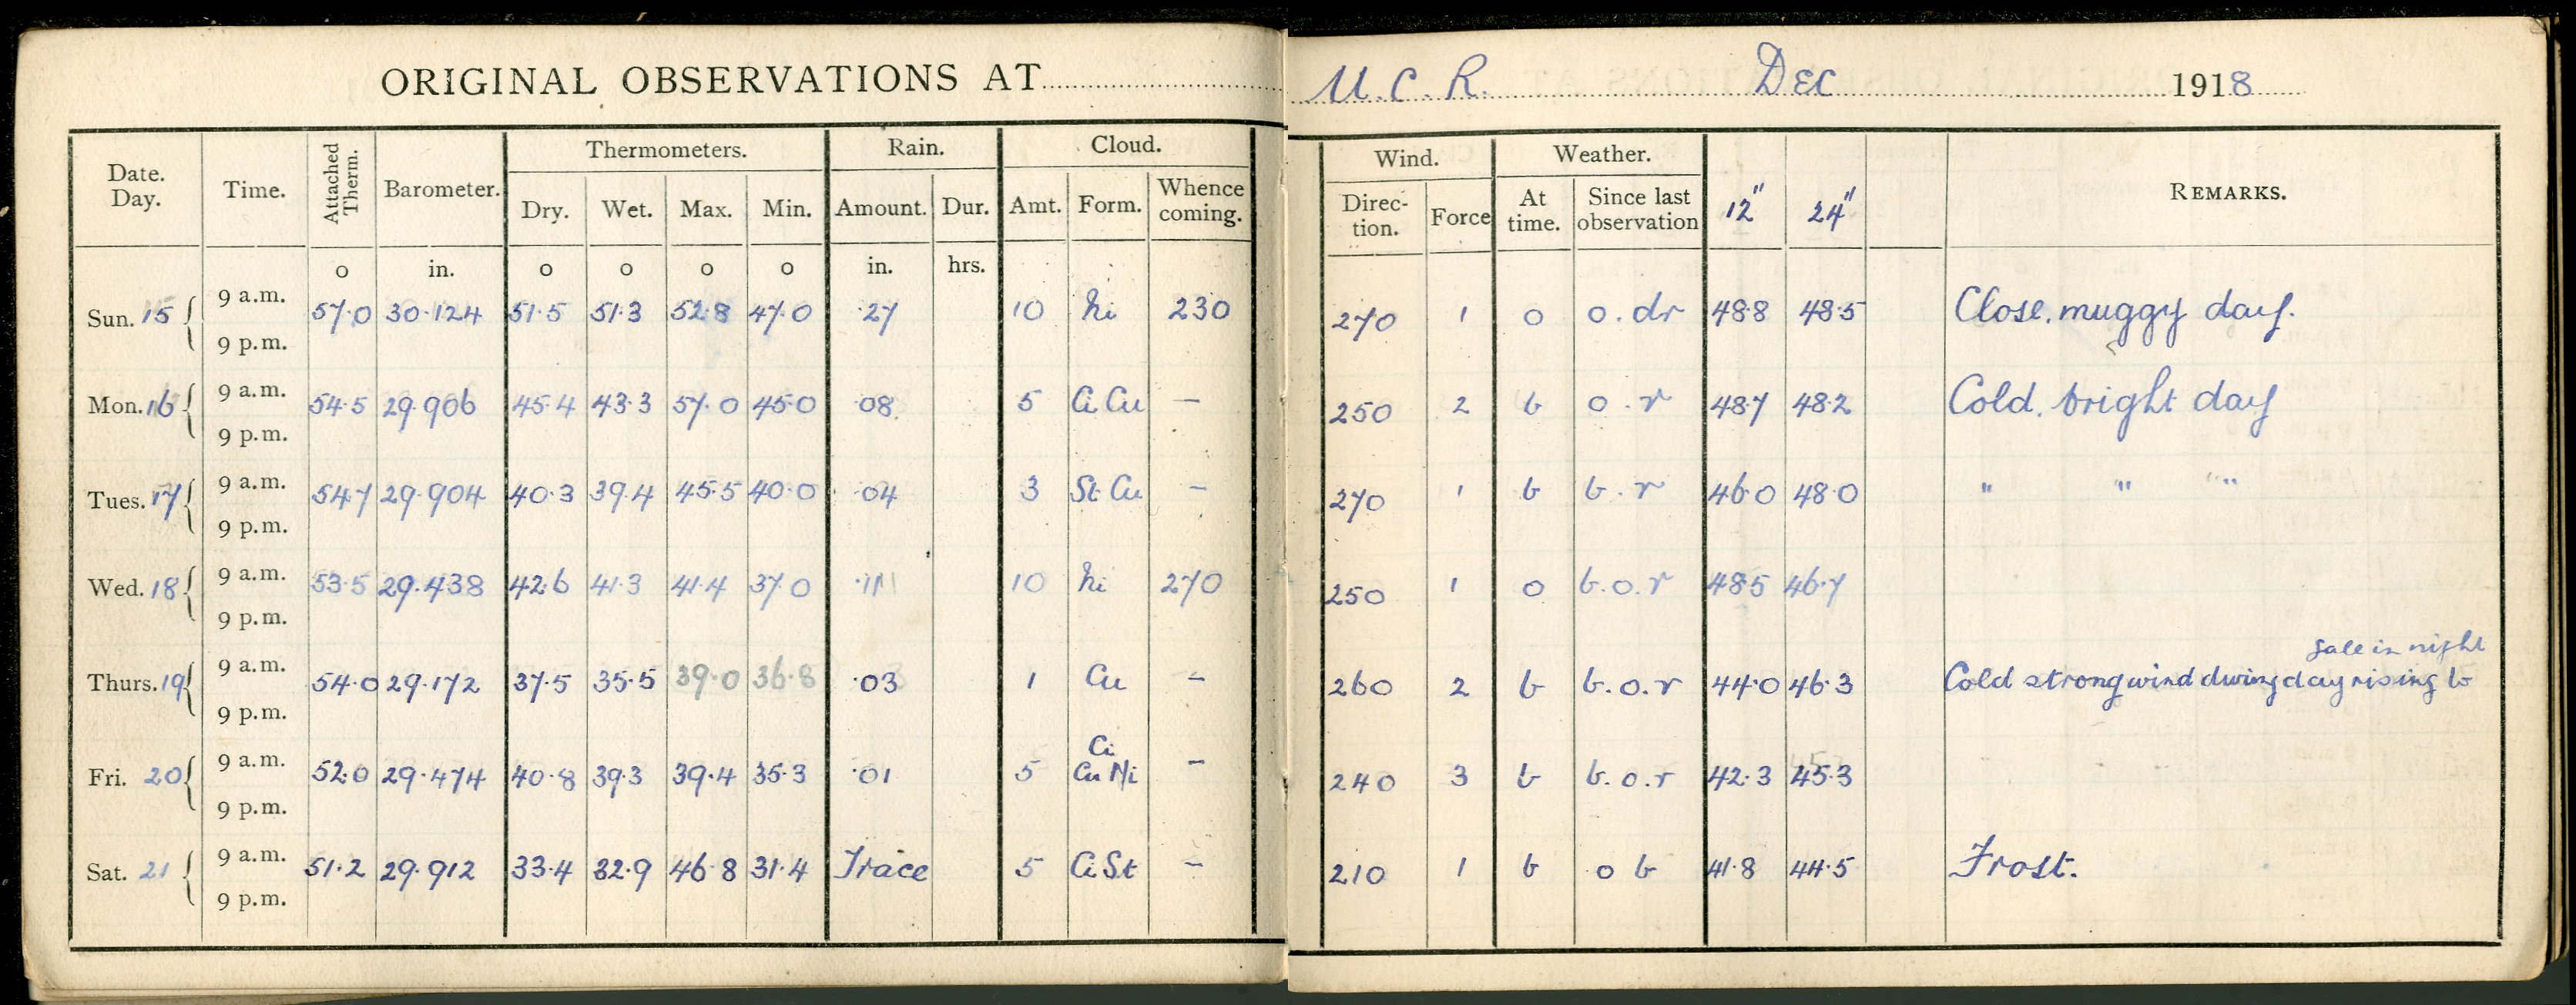 ORIGINAL OBSERVATIONS AT U.C.R. DEC 1918
Date. Day. Time. Attached Therm. Barometer. Thermometers. Rain. Cloud. Wind. Weather. 12" 24" REMARKS.
Dry. Wet. Max. Min. Amount. Dur. Amt. Form. Whence coming. Direc- tion. Force At time. Since last observation
o in. o o o o in. hrs.
Sun. 15 9 a.m. 57.0 30.124 51.5 51.3 52.8 47.0 .27 10 Ni 230 270 1 o o.dr 48.8 48.5 Close, muggy day.
9 p.m.
Mon. 16 9 a.m. 54.5 29.906 45.4 43.3 57.0 45.0 .08 5 Ci Cu — 250 2 b o.r 48.7 48.2 Cold, bright day
9 p.m.
Tues. 17 9 a.m. 54.7 29.904 40.3 39.4 45.5 40.0 .04 3 St Cu — 270 1 b b.r 46.0 48.0 " " "
9 p.m.
Wed. 18 9 a.m. 53.5 29.438 42.6 41.3 41.4 37.0 10 Ni 270 250 1 o b.o.r 48.5 46.7
9 p.m.
gale in night
Thurs. 19 9 a.m. 54.0 29.172 37.5 35.5 39.0 36.8 .03 1 Cu — 260 2 b b.o.r 44.0 46.3 Cold strong wind during day rising to
9 p.m.
Fri. 20 9 a.m. 52.0 29.474 40.8 39.3 39.4 35.3 .01 5 Ci Cu Ni — 240 3 b b.o.r 42.3 45.3
9 p.m.
Sat. 21 9 a.m. 51.2 29.912 33.4 32.9 46.8 31.4 Trace 5 Ci St — 210 1 b o b 41.8 44.5 Frost.
9 p.m.